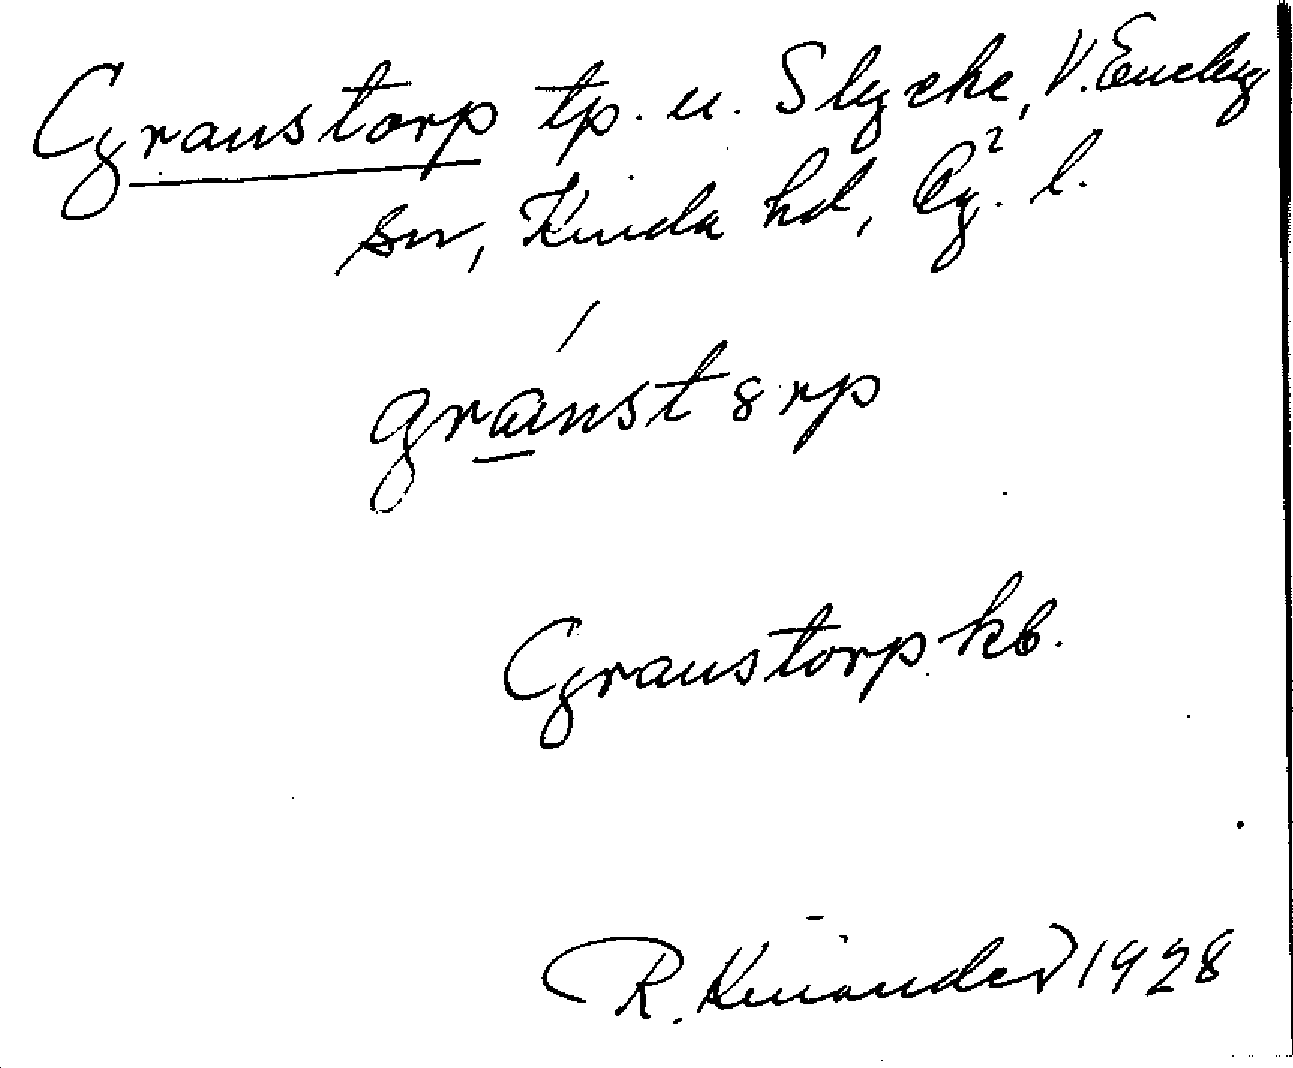 Granstorp tp. u. Slycke, V. Eneby
sn, Kinda hd, Ög. l.
granstorp
Granstorp kb.
R. Kinander 1928